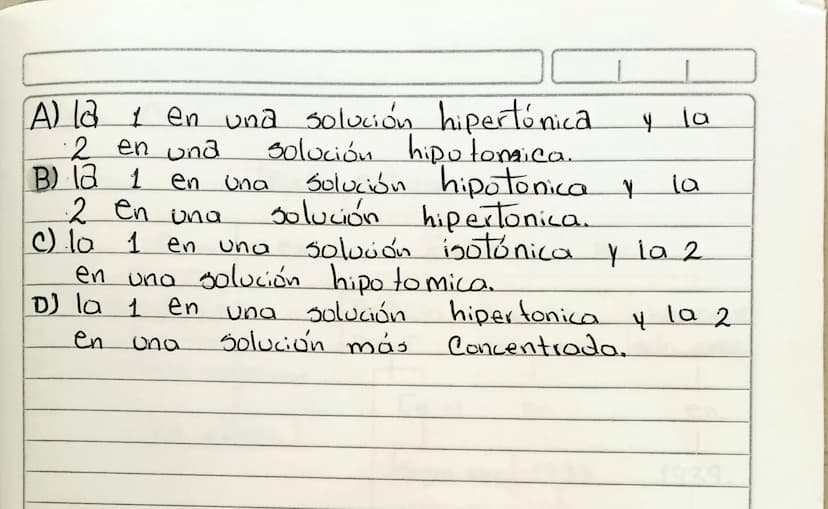 A) la 1 en una solución hipertónica y la
2 en una solución hipotomica.
B) la 1 en una solución hipotonica y la
2 en una solución hipertonica.
C) la 1 en una solución isotónica y la 2
en una solución hipotomica.
D) la 1 en una solución hipertonica y la 2
en una solución más Concentrada.